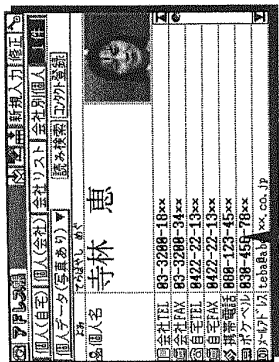 アドレス帳 新規入力 修正
個人(自宅) 個人(会社) 会社リスト 会社別個人 1件
個人データ(写真あり)▼ 読み検索 コンタクト登録
よみ てらばやし めぐ
個人名 寺林 恵
会社TEL 03-3200-18××
会社FAX 03-3200-34××
自宅TEL 0422-22-13××
自宅FAX 0422-22-13××
携帯電話 080-123-45××
ポケベル 030-456-78××
メールアドレス teba@abc×××.co.jp